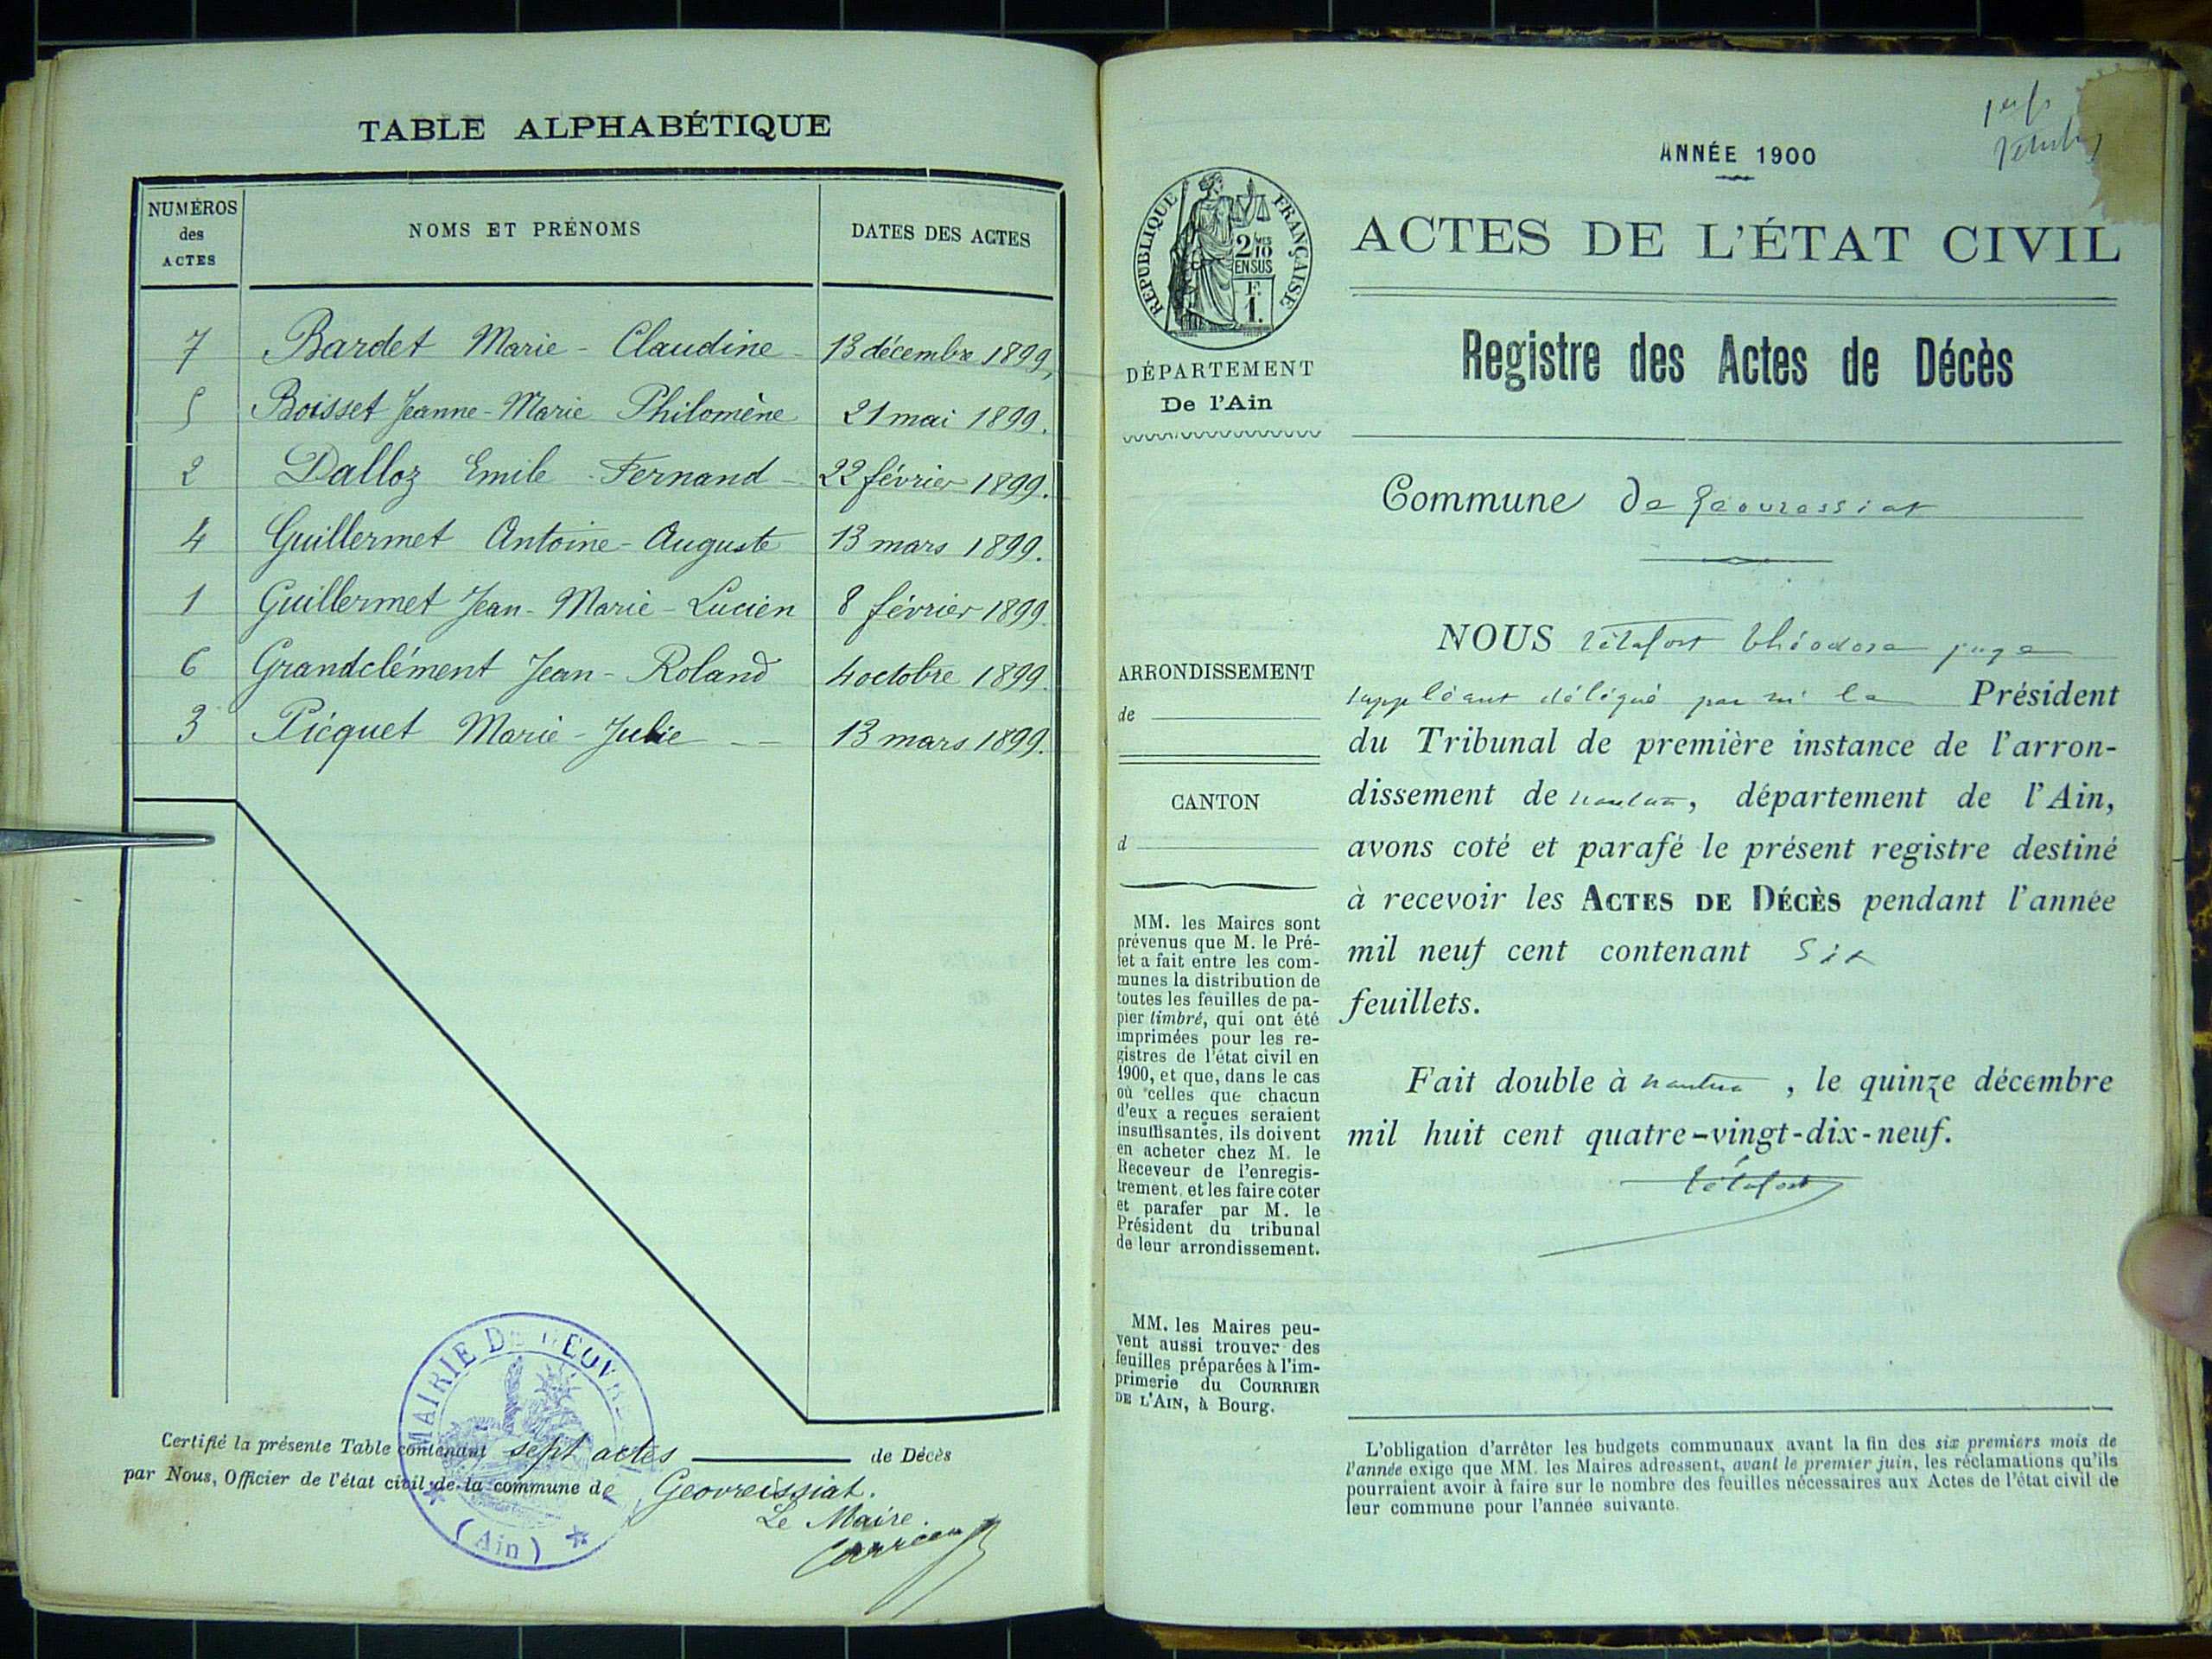 TABLE ALPHABÉTIQUE
NUMÉROS des ACTES NOMS ET PRÉNOMS DATES DES ACTES
7 Bardet Marie - Claudine - 13 décembre 1899,
5 Boisset Jeanne-Marie Philomène 21 mai 1899.
2 Dalloz Emile - Fernand - 22 février 1899.
4 Guillermet Antoine - Auguste 13 mars 1899.
1 Guillermet Jean - Marie - Lucien 8 février 1899.
6 Grandclément Jean - Roland 4 octobre 1899.
3 Picquet Marie - Julie - - 13 mars 1899.
Certifié la présente Table contenant sept actes de Décès
par Nous, Officier de l'état civil de la commune de Geovreissiat.
Le Maire.
Carrean
MAIRIE DE GEOVR
(Ain)
ANNÉE 1900
RÉPUBLIQUE FRANÇAISE
2/10 MES
EN SUS
F.
1.
ACTES DE L'ÉTAT CIVIL
Registre des Actes de Décès
DÉPARTEMENT
De l'Ain
Commune de Géovressiat
ARRONDISSEMENT
de
CANTON
d
MM. les Maires sont
prévenus que M. le Pré-
fet a fait entre les com-
munes la distribution de
toutes les feuilles de pa-
pier timbré, qui ont été
imprimées pour les re-
gistres de l'état civil en
1900, et que, dans le cas
où celles que chacun
d'eux a reçues seraient
insuffisantes, ils doivent
en acheter chez M. le
Receveur de l'enregis-
trement, et les faire coter
et parafer par M. le
Président du tribunal
de leur arrondissement.
MM. les Maires peu-
vent aussi trouver des
feuilles préparées à l'im-
primerie du COURRIER
DE L'AIN, à Bourg.
NOUS tétafort théodore juge
suppléant délégué par m' le Président
du Tribunal de première instance de l'arron-
dissement de nantua, département de l'Ain,
avons coté et parafé le présent registre destiné
à recevoir les ACTES DE DÉCÈS pendant l'année
mil neuf cent contenant Six
feuillets.
Fait double à nantua, le quinze décembre
mil huit cent quatre-vingt-dix-neuf.
tétafort
L'obligation d'arrêter les budgets communaux avant la fin des six premiers mois de
l'année exige que MM. les Maires adressent, avant le premier juin, les réclamations qu'ils
pourraient avoir à faire sur le nombre des feuilles nécessaires aux Actes de l'état civil de
leur commune pour l'année suivante.